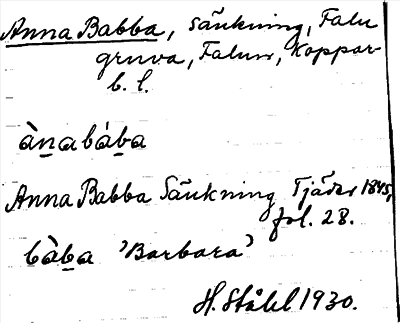 Anna Babba, sänkning, Falu
gruva, Falun, Koppar-
b. l.
ànabába
Anna Babba Sänkning Tjäder 1845,
fol. 28.
bàba 'Barbara'
H. Ståhl 1930.